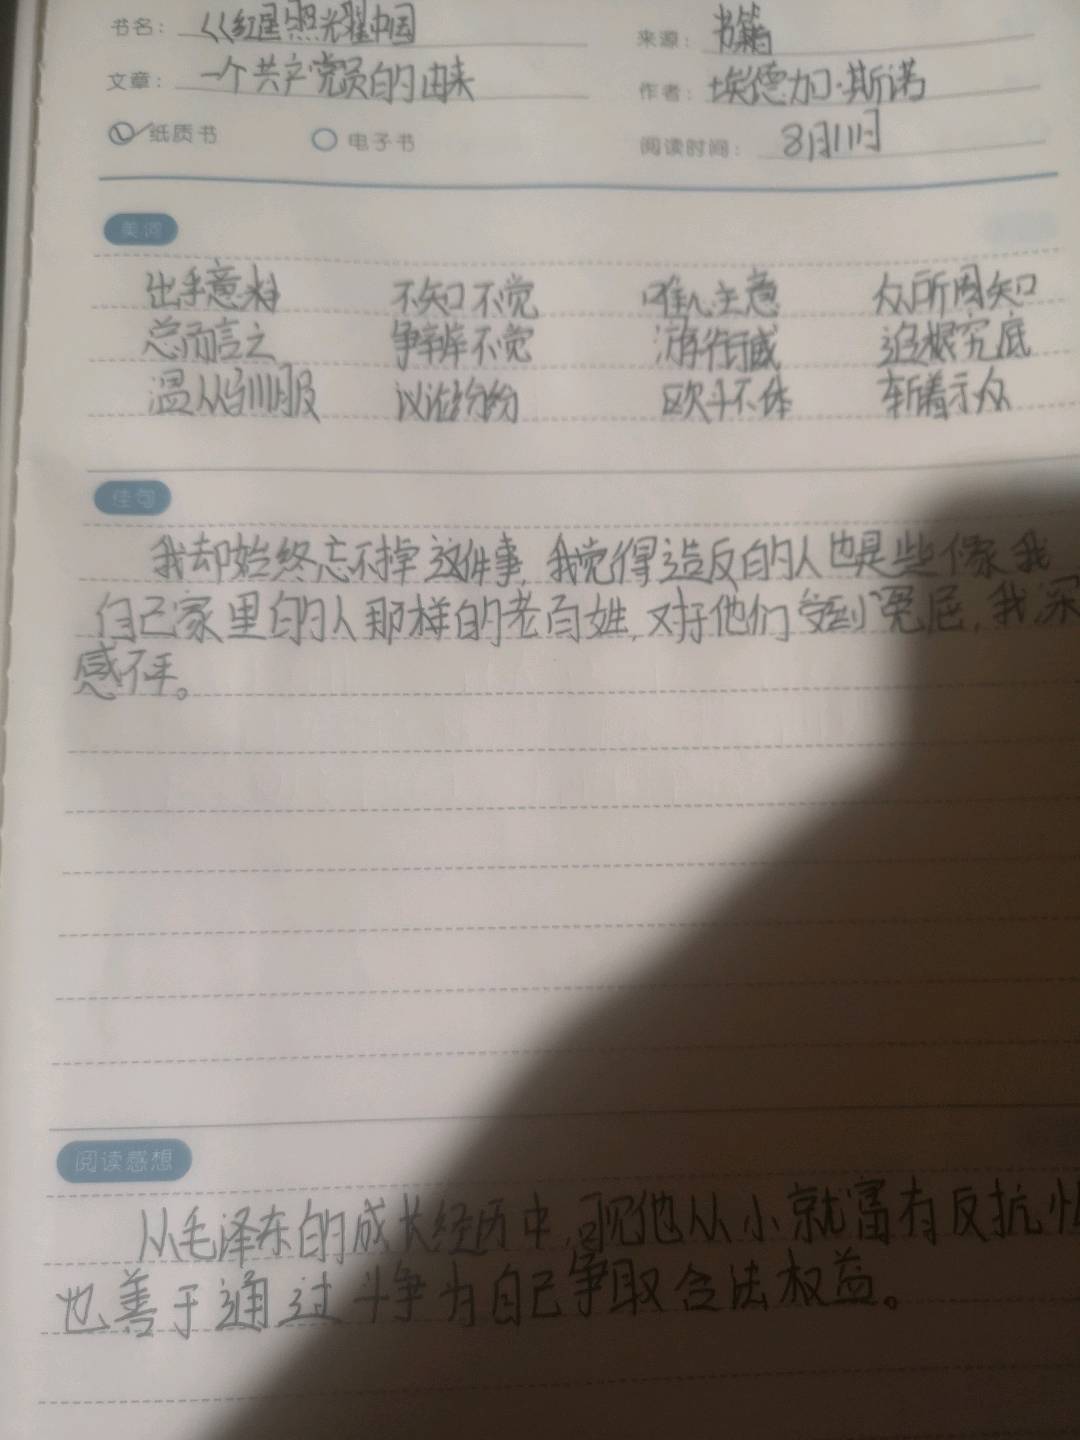 书名： 《红星照光耀中国 来源： 书籍
文章： 一个共产党员的由来 作者： 埃德加·斯诺
纸质书 电子书 阅读时间： 8月11日
美词
出乎意料 不知不觉 唯心主意 众所周知
总而言之 争辩不觉 追根究底
温从驯服 议论纷纷 斩首示众
佳句
我却始终忘不掉这件事，我觉得造反的人也是些像我
自己家里的人那样的老百姓，对于他们受到冤屈，我深
感不平。
阅读感想
从毛泽东的成长经历中，可见他从小就富有反抗
也善于通过斗争为自己争取合法权益。